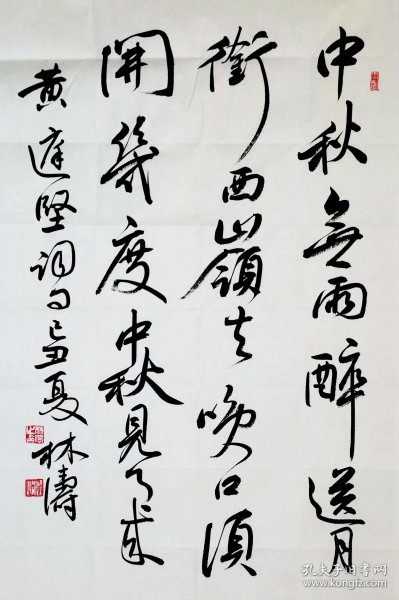 中秋無雨醉送月
銜西嶺去咲口須
開幾度中秋見月來
黄庭堅詞句己丑夏林濤
孔夫子旧书网
www.kongfz.com